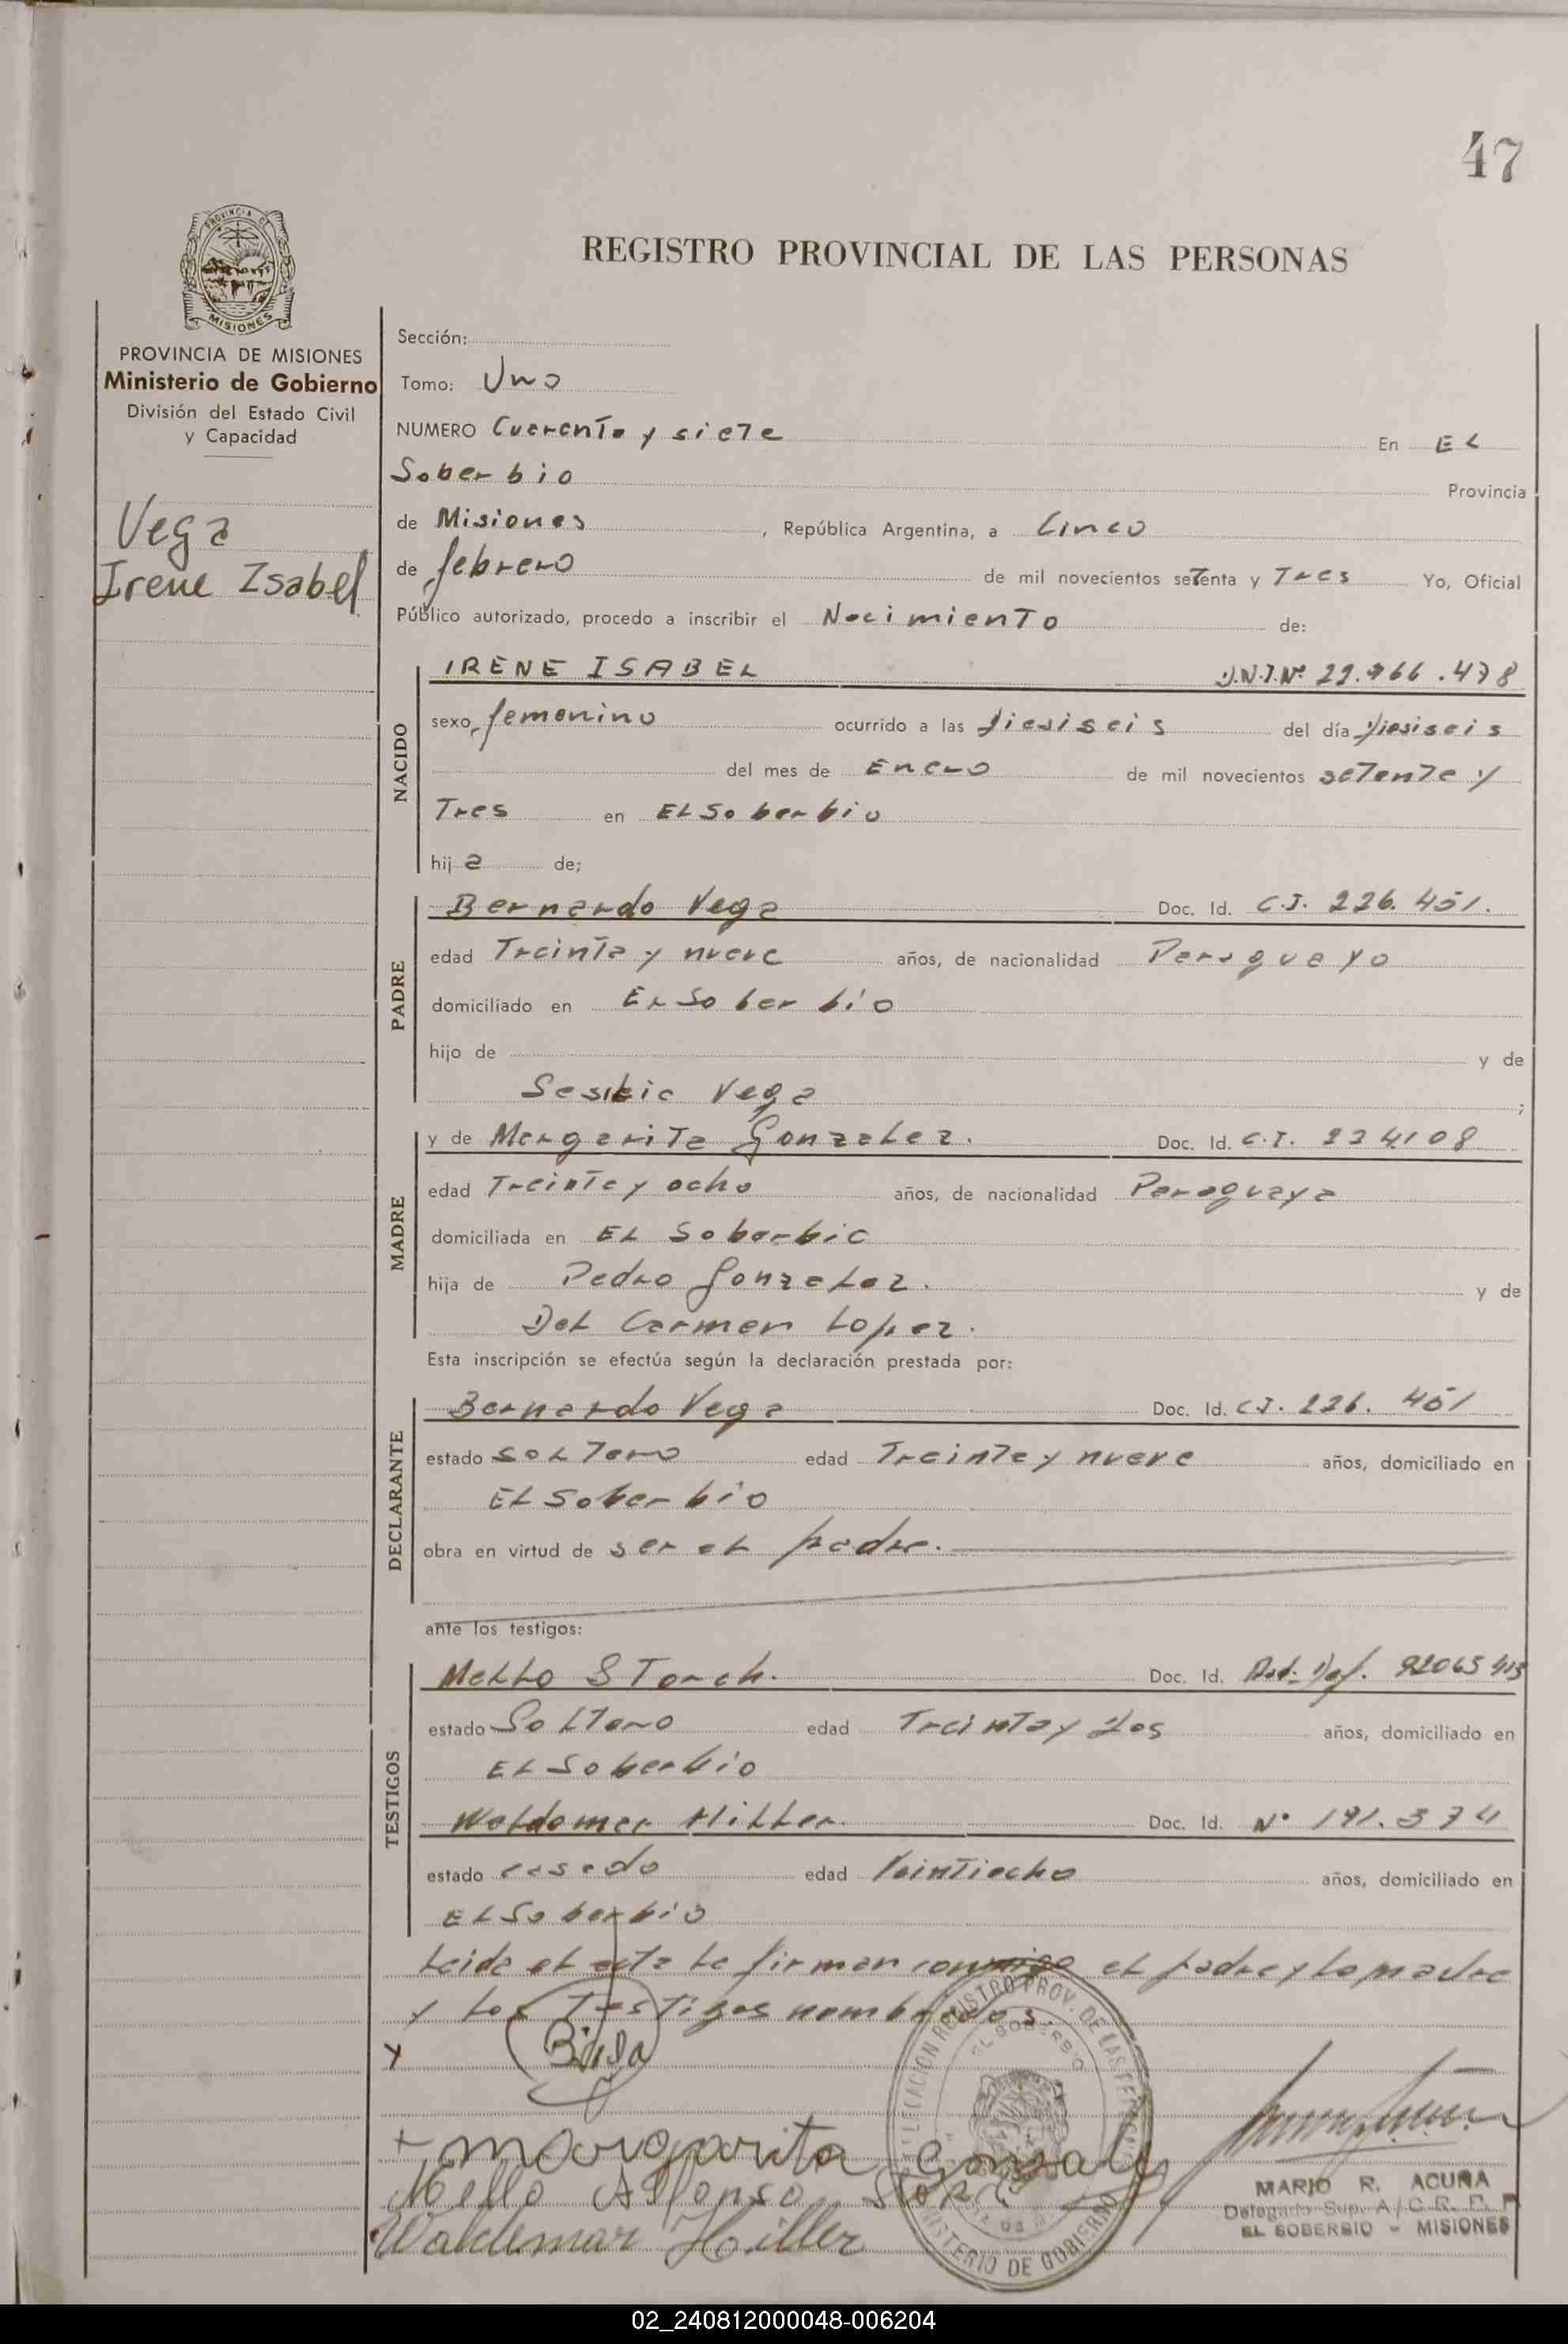 47
REGISTRO PROVINCIAL DE LAS PERSONAS
PROVINCIA DE
MISIONES
PROVINCIA DE MISIONES
Ministerio de Gobierno
División del Estado Civil
y Capacidad
Vega
Irene Isabel
Sección:
Tomo: Uno
NUMERO Cuarenta y siete En EL
Soberbio Provincia
de Misiones, República Argentina, a Cinco
de febrero de mil novecientos setenta y Tres Yo, Oficial
Público autorizado, procedo a inscribir el Nacimiento de:
NACIDO
IRENE ISABEL D.N.I. Nº 22.966.478
sexo femenino ocurrido a las diesiseis del día diesiseis
del mes de Enero de mil novecientos setenta y
Tres en EL Soberbio
hija de;
PADRE
Bernardo Vega Doc. Id. C.I. 226.451.
edad Treinta y nueve años, de nacionalidad Paraguayo
domiciliado en EL Soberbio
hijo de y de
Vega ;
MADRE
y de Margarita Gonzalez. Doc. Id. C.I. 224108
edad Treinta y ocho años, de nacionalidad Paraguaya
domiciliada en EL Soberbio
hija de Pedro Gonzalez. y de
Del Carmen Lopez.
Esta inscripción se efectúa según la declaración prestada por:
DECLARANTE
Bernardo Vega Doc. Id. C.I. 226.451
estado soltero edad Treinta y nueve años, domiciliado en
EL Soberbio
obra en virtud de ser el padre.
ante los testigos:
TESTIGOS
Mello Storch. Doc. Id. 92065413
estado Soltero edad Treinta y dos años, domiciliado en
EL Soberbio
Waldemar Hiller. Doc. Id. Nº 191.374
estado casado edad Veintiocho años, domiciliado en
EL Soberbio
Leida el acta la firman conmigo el padre y la madre
y los Testigos nombrados.
x
+ Margarita Gonsale
Mello Alfonso Storch
Waldemar Hiller
DELEGACION REGISTRO PROV. DE LAS PERSONAS
EL SOBERBIO
MINISTERIO DE GOBIERNO
MARIO R. ACUÑA
Delegado Sup. A/C R. P. P.
EL SOBERBIO - MISIONES
02_240812000048-006204